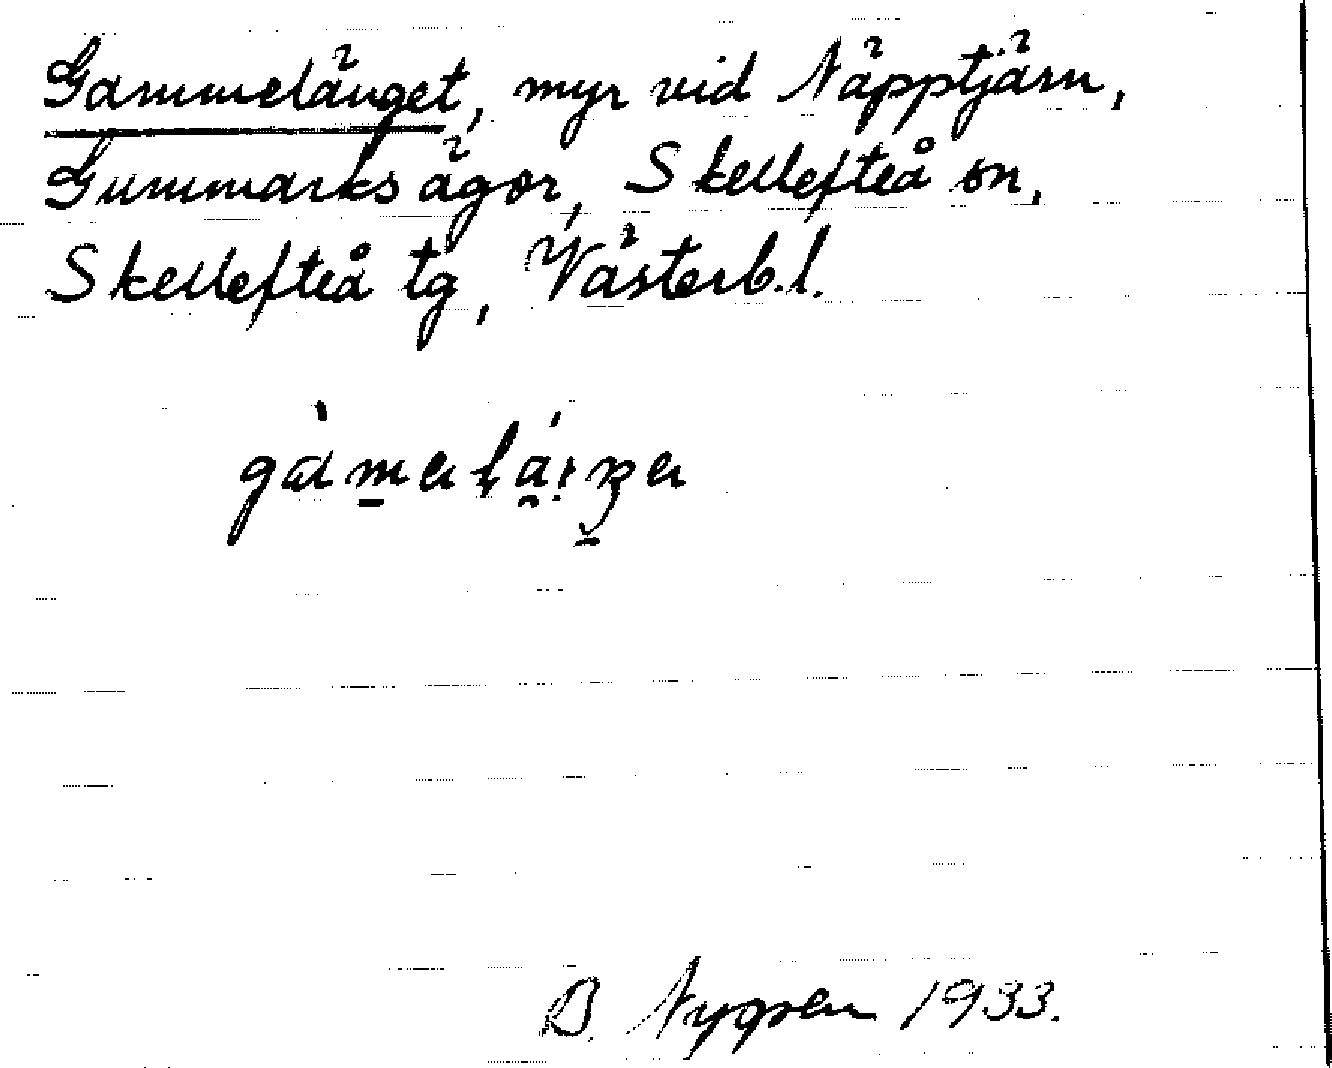 Gammelänget, myr vid Näpptjärn,
Gummarks ägor, Skellefteå sn,
Skellefteå tg, Västerb.l.
B. Nygren 1933.